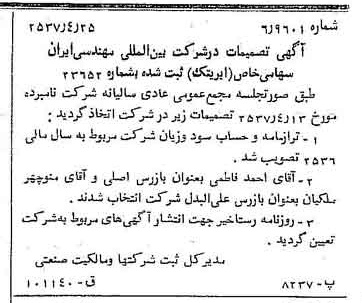 شماره ۶٫۹۶۰۱ ۲۵۳۷٫۴٫۲۵
آگهی تصمیمات در شرکت بین‌المللی مهندسی ایران
سهامی خاص (ایریتک) ثبت شده بشماره ۲۳۶۵۲
طبق صورتجلسه مجمع عمومی عادی سالیانه شرکت نامبرده
مورخ ۲۵۳۷٫۴٫۱۳ تصمیمات زیر در شرکت اتخاذ گردید :
۱ - ترازنامه و حساب سود وزیان شرکت مربوط به سال مالی
۲۵۳۶ تصویب شد .
۲ - آقای احمد فاطمی بعنوان بازرس اصلی و آقای منوچهر
ملکیان بعنوان بازرس علی‌البدل شرکت انتخاب شدند .
۳ - روزنامه رستاخیز جهت انتشار آگهی‌های مربوط به شرکت
تعیین گردید .
مدیر کل ثبت شرکتها و مالکیت صنعتی
پ - ۸۲۳۷ ق - ۱۰۱۱۴۰